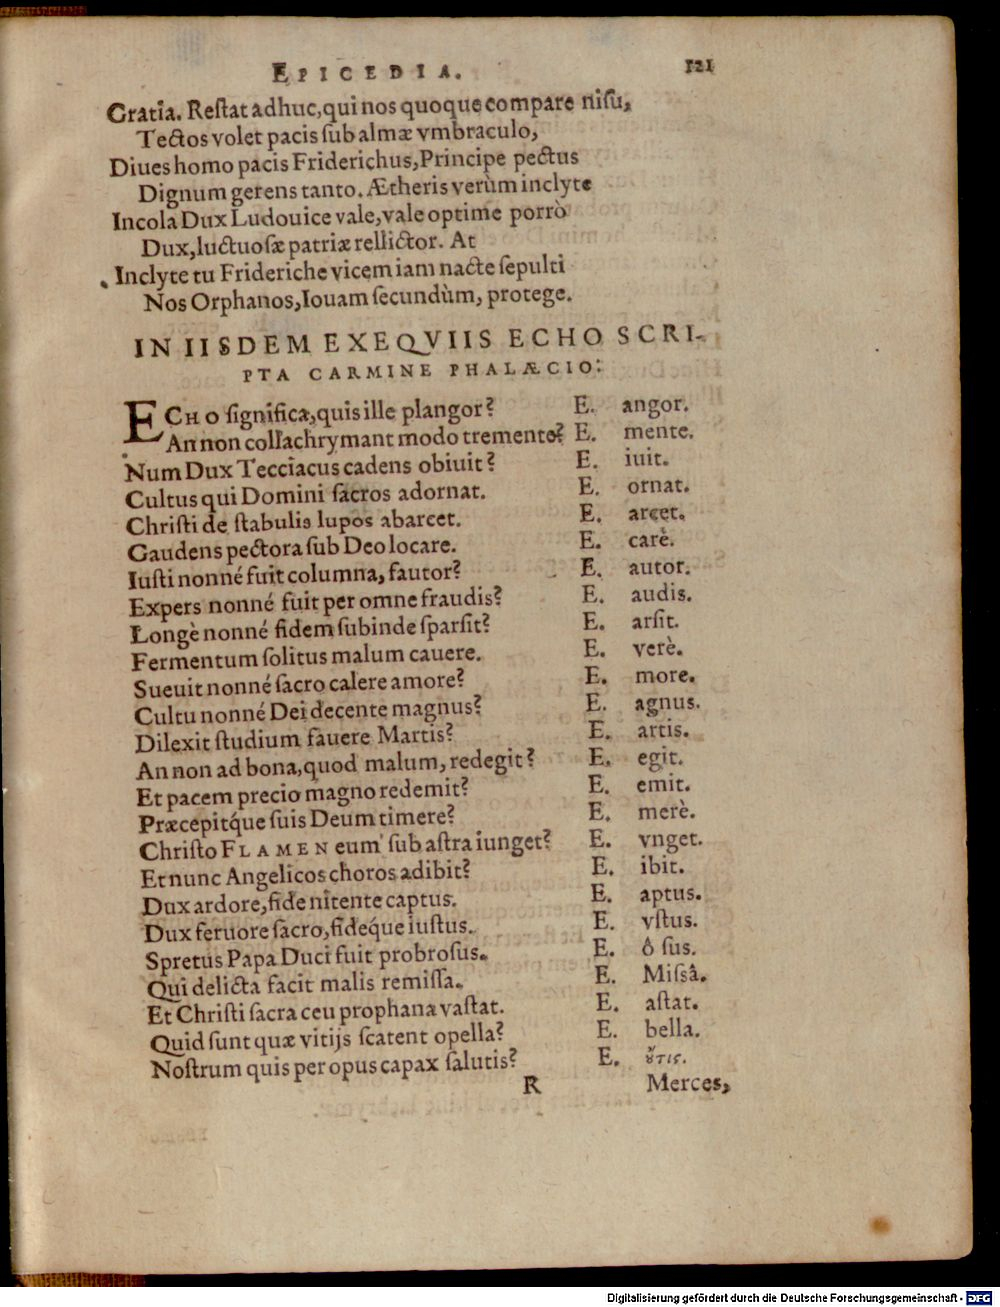 EPICEDIA. 121
Gratia. Reſtat adhuc, qui nos quoque compare niſu,
Tectos volet pacis ſub almæ vmbraculo,
Diues homo pacis Friderichus, Principe pectus
Dignum gerens tanto. Ætheris verùm inclyte
Incola Dux Ludouice vale, vale optime porrò
Dux, luctuoſæ patriæ rellictor. At
Inclyte tu Frideriche vicem iam nacte ſepulti
Nos Orphanos, Iouam ſecundùm, protege.
IN IISDEM EXEQVIIS ECHO SCRI-
PTA CARMINE PHALÆCIO:
ECHO ſignifica, quis ille plangor? E. angor.
An non collachrymant modo tremente? E. mente.
Num Dux Tecciacus cadens obiuit? E. iuit.
Cultus qui Domini ſacros adornat. E. ornat.
Chriſti de ſtabulis lupos abarcet. E. arcet.
Gaudens pectora ſub Deo locare. E. carè.
Iuſti nonné fuit columna, fautor? E. autor.
Expers nonné fuit per omne fraudis? E. audis.
Longè nonné fidem ſubinde ſparſit? E. arſit.
Fermentum ſolitus malum cauere. E. verè.
Sueuit nonné ſacro calere amore? E. more.
Cultu nonné Dei decente magnus? E. agnus.
Dilexit ſtudium fauere Martis? E. artis.
An non ad bona, quod malum, redegit? E. egit.
Et pacem precio magno redemit? E. emit.
Præcepitq́ue ſuis Deum timere? E. merè.
Chriſto FLAMEN eum ſub aſtra iunget? E. vnget.
Et nunc Angelicos choros adibit? E. ibit.
Dux ardore, fide nitente captus. E. aptus.
Dux feruore ſacro, fideq́ue iuſtus. E. vſtus.
Spretus Papa Duci fuit probroſus. E. ô ſus.
Qui delicta facit malis remiſſa. E. Miſsâ.
Et Chriſti ſacra ceu prophana vaſtat. E. aſtat.
Quid ſunt quæ vitijs ſcatent opella? E. bella.
Noſtrum quis per opus capax ſalutis? E. ȣ̓́τις.
R Merces,
Digitalisierung gefördert durch die Deutsche Forschungsgemeinschaft - DFG